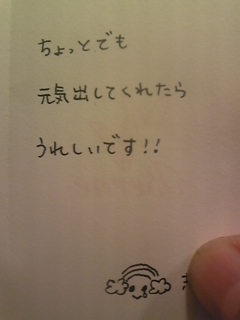 ちょっとでも
元気出してくれたら
うれしいです!!